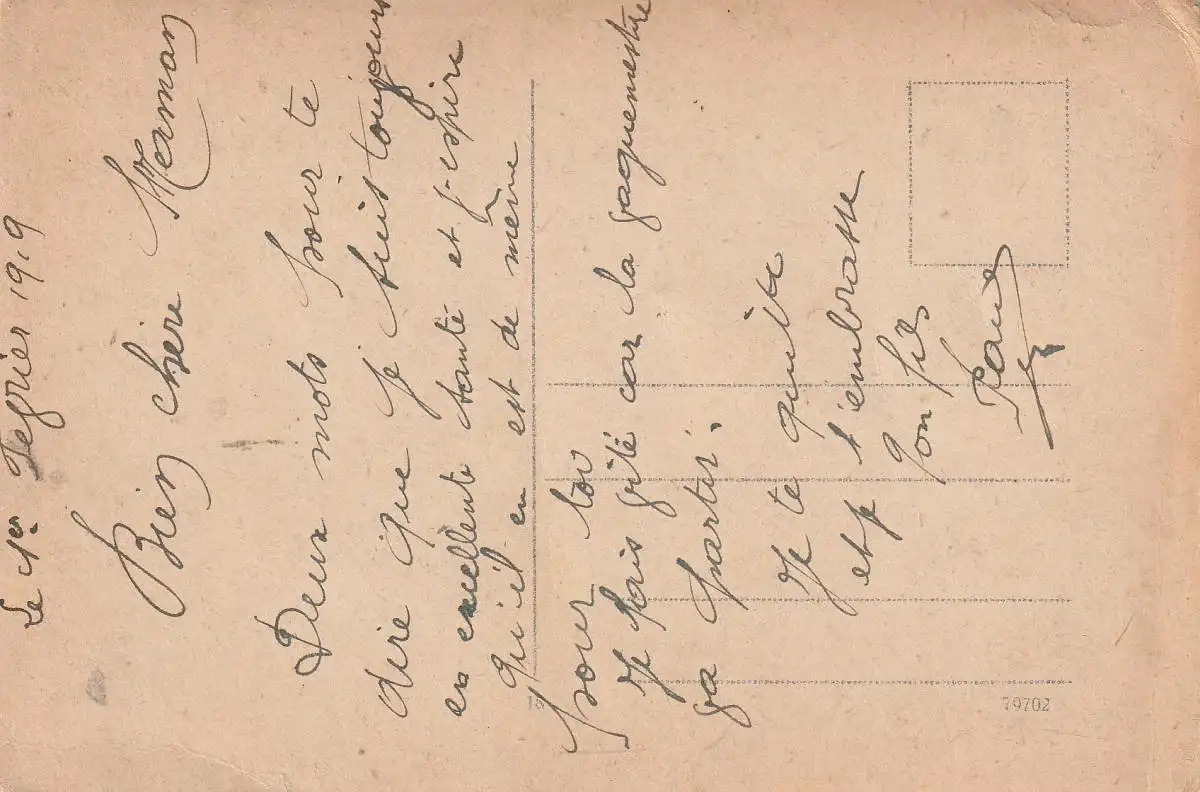 Le 1er Fegrier 1919
Bien chère Maman
Deux mots pour te
dire que je suis toujours
en excellente santé et j'espère
qu'il en est de même
pour toi
Je fais vité car la gaguemestre
ga partir.
Je te quitte
et je t'embrasse
Ton fils
79702